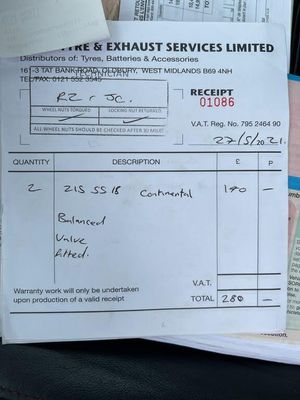 TYRE & EXHAUST SERVICES LIMITED
Distributors of: Tyres, Batteries & Accessories
-3 TAT BANK ROAD, OLDBURY, WEST MIDLANDS B69 4NH
TEL/FAX: 0121 552 3545
TECHNICIAN
RZ. JC.
WHEEL NUTS TORQUED LOCKING NUT RETURNED
ALL WHEEL NUTS SHOULD BE CHECKED AFTER 30 MILES
RECEIPT
01086
V.A.T. Reg. No. 795 2464 90
27/5/2021
QUANTITY DESCRIPTION £ P
2 215 55 18 Continental —
Balanced
Valve
fitted.
V.A.T.
Warranty work will only be undertaken
upon production of a valid receipt
TOTAL 280 —